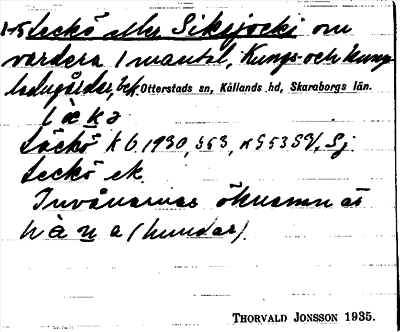 1-5 Leckö eller Siksjocki om
vardera 1 mantal, Kungs- och Kungs
ladugårdar, bef. Otterstads sn, Kållands hd, Skaraborgs län.
Läckö K 6, 1930, s 53,
Leckö ek.
Invånarnas öknamn är
hàna (hundar).
THORVALD JONSSON 1935.